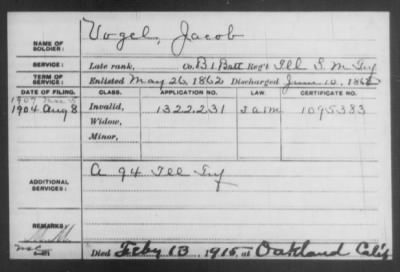 Vogel, Jacob
NAME OF SOLDIER:
SERVICE: Late rank, Co. B 1 Batt Reg't Ill L. M. Ty
TERM OF SERVICE: Enlisted May 26, 1862 Discharged June 10, 186
DATE OF FILING. CLASS. APPLICATION NO. LAW. CERTIFICATE NO.
1907
1904 Aug 8 Invalid, 1322,231 1095383
Widow,
Minor,
ADDITIONAL SERVICES: A 94 Ill Inf
REMARKS:
Died Feby 13, 1915, at Oakland Calif